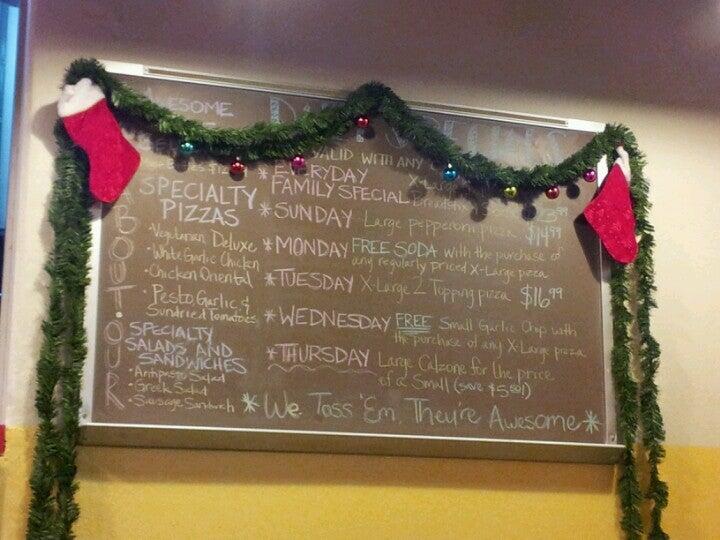 AWESOME
VALID WITH ANY
EVERYDAY
FAMILY SPECIAL
X-Lar
23.99
SPECIALTY
PIZZAS
• Vegetarian Deluxe
• White Garlic Chicken
• Chicken Oriental
• Pesto, Garlic, &
Sundried Tomatoes
SPECIALTY
SALADS AND
SANDWICHES
• Antipasto Salad
• Greek Salad
• Sausage Sandwich
ABOUT OUR
*SUNDAY Large pepperoni pizza
$14.99
*MONDAY FREE SODA with the purchase of
any regularly priced X-Large pizza
*TUESDAY X-Large 2 Topping pizza $16.99
*WEDNESDAY FREE Small Garlic Chop with
the purchase of any X-Large pizza
*THURSDAY Large Calzone for the price
of a Small (save $5.50!)
*We Toss 'Em, They're Awesome*